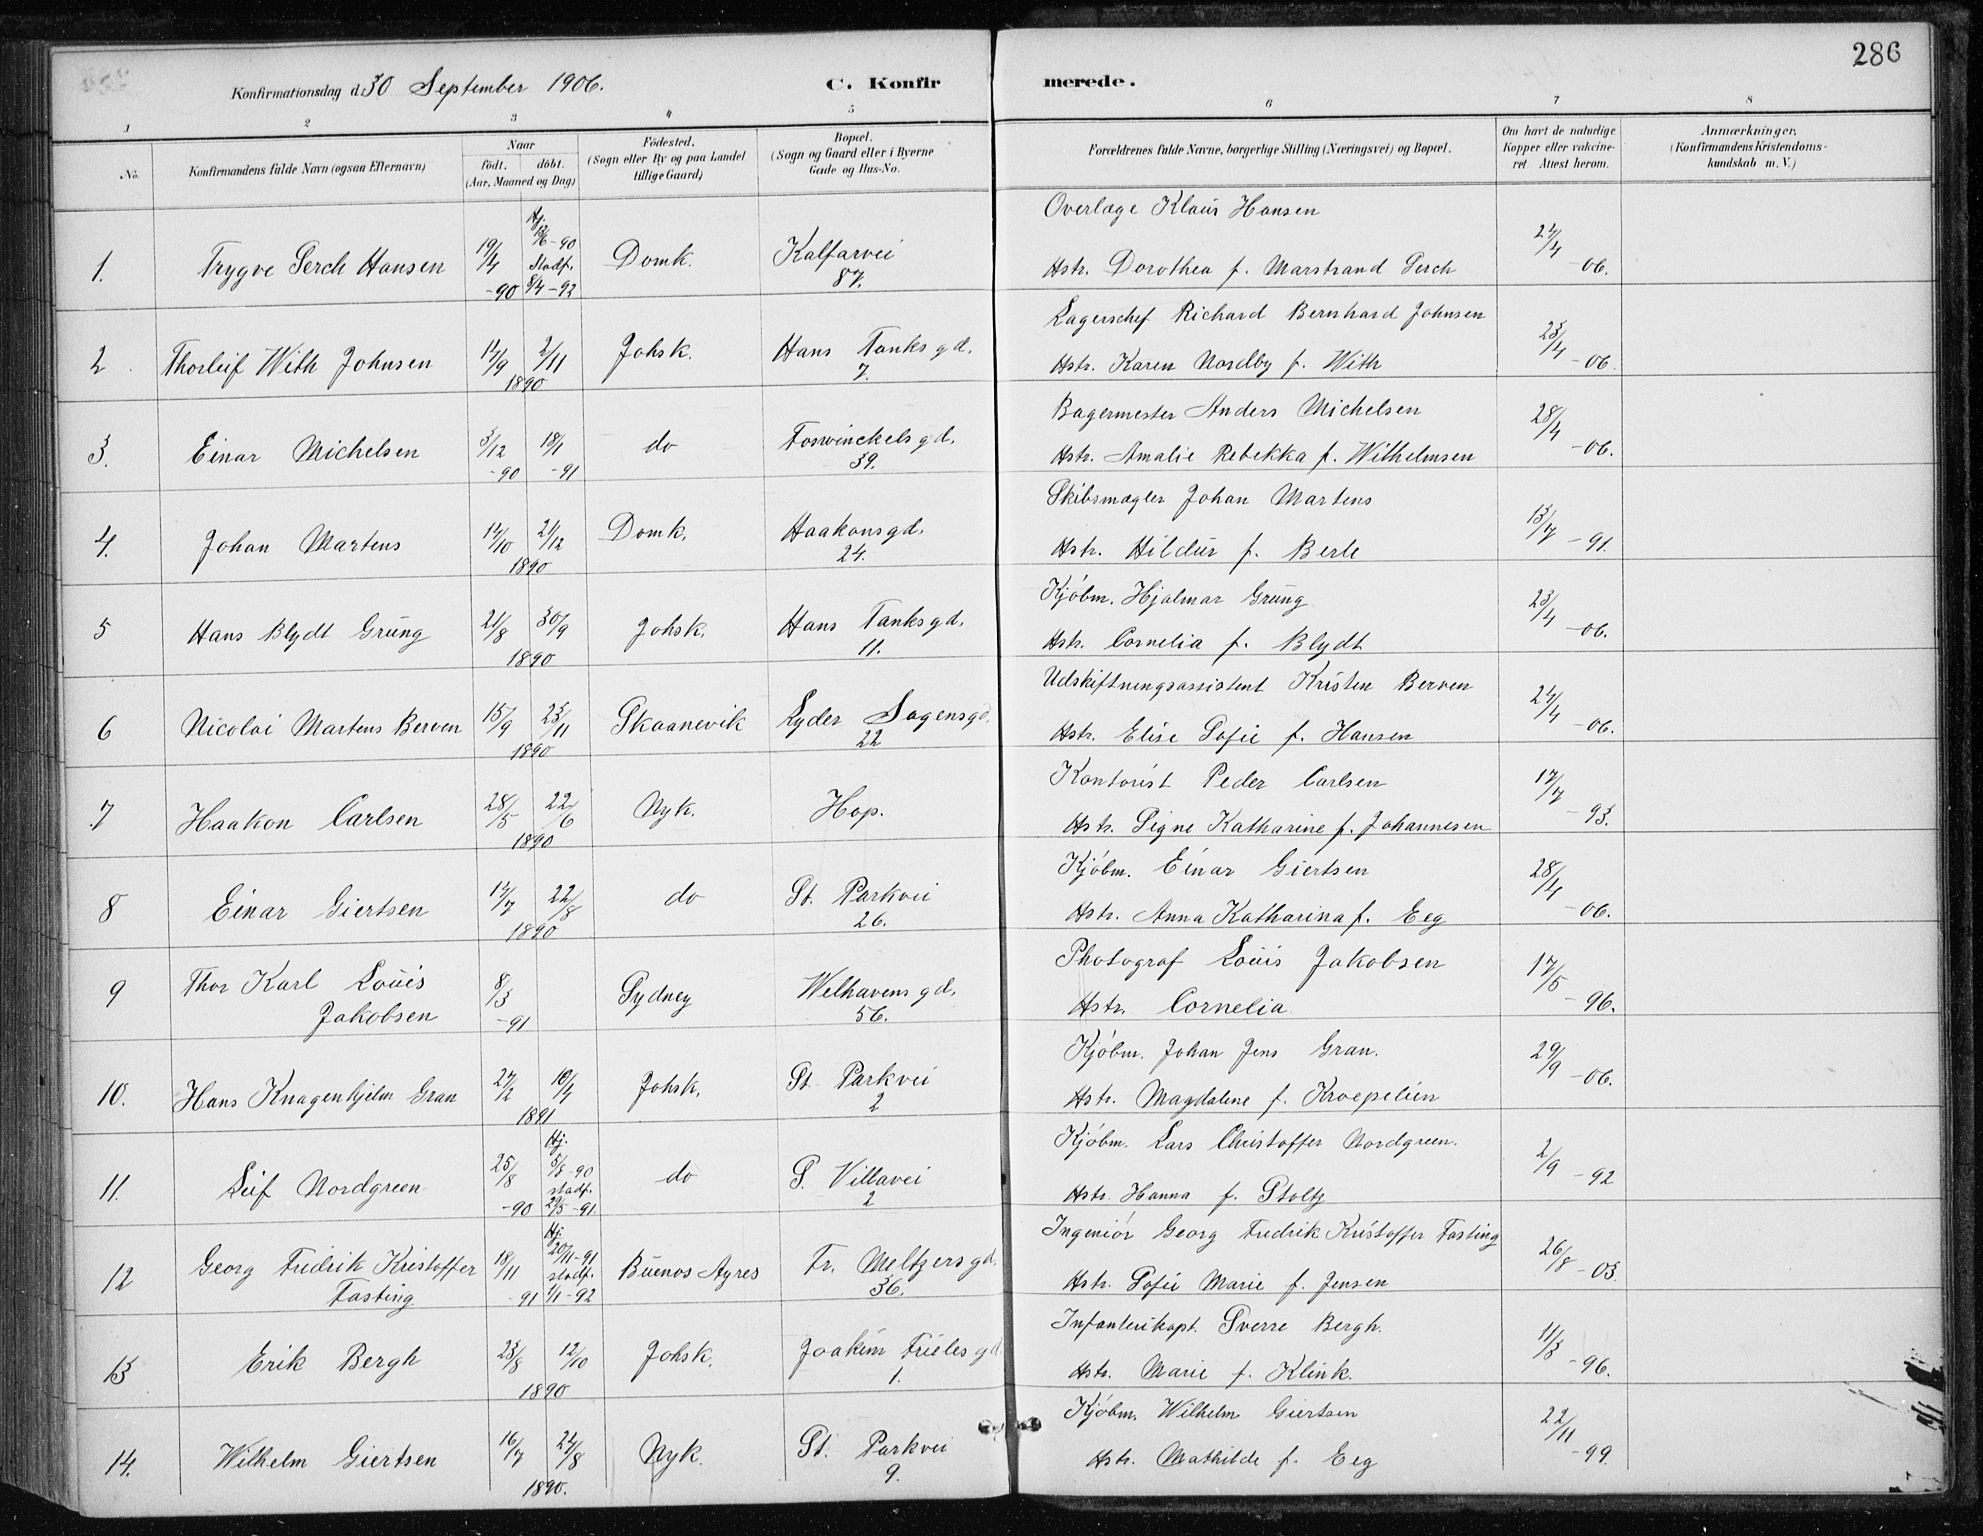 286
Konfirmationsdag d. 30 September 1906.
C. Konfirmerede.
1 2 3 4 5 6 7 8
No.
Konfirmandens fulde Navn (ogsaa Efternavn)
Naar
födt. döbt.
(Aar, Maaned og Dag)
Födested.
(Sogn eller By og paa Landet
tillige Gaard)
Bopæl.
(Sogn og Gaard eller i Byerne
Gade og Hus-No.
Forældrenes fulde Navne, borgerlige Stilling (Næringsvei) og Bopæl.
Om havt de naturlige
Kopper eller vakcine-
ret Attest herom.
Anmærkninger.
(Konfirmandens Kristendoms-
kundskab m. V.)
1. Trygve Lerch Hansen 19/4 -90 Hj. -90 Stadf. -92 Domk. Kalfarvei 87.
Overlæge Klaus Hansen
Hstr. Dorothea f. Marstrand Lerch 27/4 -06.
2. Thorleif With Johnsen 17/9 2/11 1890 Johsk. Hans Tanksgd. 7.
Lagerschef Richard Bernhard Johnsen
Hstr. Karen Nordby f. With 23/4 -06.
3. Einar Michelsen 3/12 -90 18/1 -91 do Foswinckelsgd. 39.
Bagermester Anders Michelsen
Hstr. Amalie Rebekka f. Wilhelmsen 28/4 -06.
4. Johan Martens 14/10 21/12 1890 Domk. Haakonsgd. 24.
Skibsmægler Johan Martens
Hstr. Hildur f. Berle 13/7 -91.
5 Hans Blydt Grung 21/8 30/9 1890 Johsk. Hans Tanksgd. 11.
Kjøbm. Hjalmar Grung
Hstr. Cornelia f. Blydt 23/4 -06.
6 Nicolai Martens Berven 15/9 23/11 1890 Skaanevik Lyder Sagensgd. 22
Udskiftningsassistent Kristen Berven
Hstr. Elise Sofie f. Hansen 27/4 -06.
7 Haakon Carlsen 28/5 22/6 1890 Nyk. Hop.
Kontorist Peder Carlsen
Hstr. Signe Katharine f. Johannesen 17/7 -93.
8 Einar Giertsen 17/7 22/8 1890 do St. Parkvei 26.
Kjøbm. Einar Giertsen
Hstr. Anna Katharina f. Eeg 28/4 -06.
9 Thor Karl Louis
Jakobsen 8/3 -91 Sydney Welhavensgd. 56.
Photograf Louis Jakobsen
Hstr. Cornelia 17/5 -96.
10. Hans Knagenhjelm Gran 27/2 10/4 1891 Johsk. St. Parkvei 2
Kjøbm. Johan Jens Gran.
Hstr. Magdalene f. Kroepelien 29/9 -06.
11. Leif Nordgreen 25/8 -90 Hj. -90 stadf. 29/5 -91 do S. Villavei 2
Kjøbm. Lars Christoffer Nordgreen.
Hstr. Hanna f. Stoltz 2/9 -92
12 Georg Fredrik Kristoffer
Fasting 18/11 -91 Hj. 20/11 -91 stadf. 1/1 -92 Buenos Ayres Fr. Meltzersgd. 36.
Ingeniør Georg Fredrik Kristoffer Fasting
Hstr. Sofie Marie f. Jensen 26/8 -03.
13 Erik Bergh 23/8 12/10 1890 Johsk. Joakim Frielesgd. 1.
Infanterikapt. Sverre Bergh.
Hstr. Marie f. Klink. 11/3 -96.
14. Wilhelm Giertsen 16/7 24/8 1890. Nyk. St. Parkvei 9.
Kjøbm. Wilhelm Giertsen
Hstr. Mathilde f. Eeg 22/11 -99.